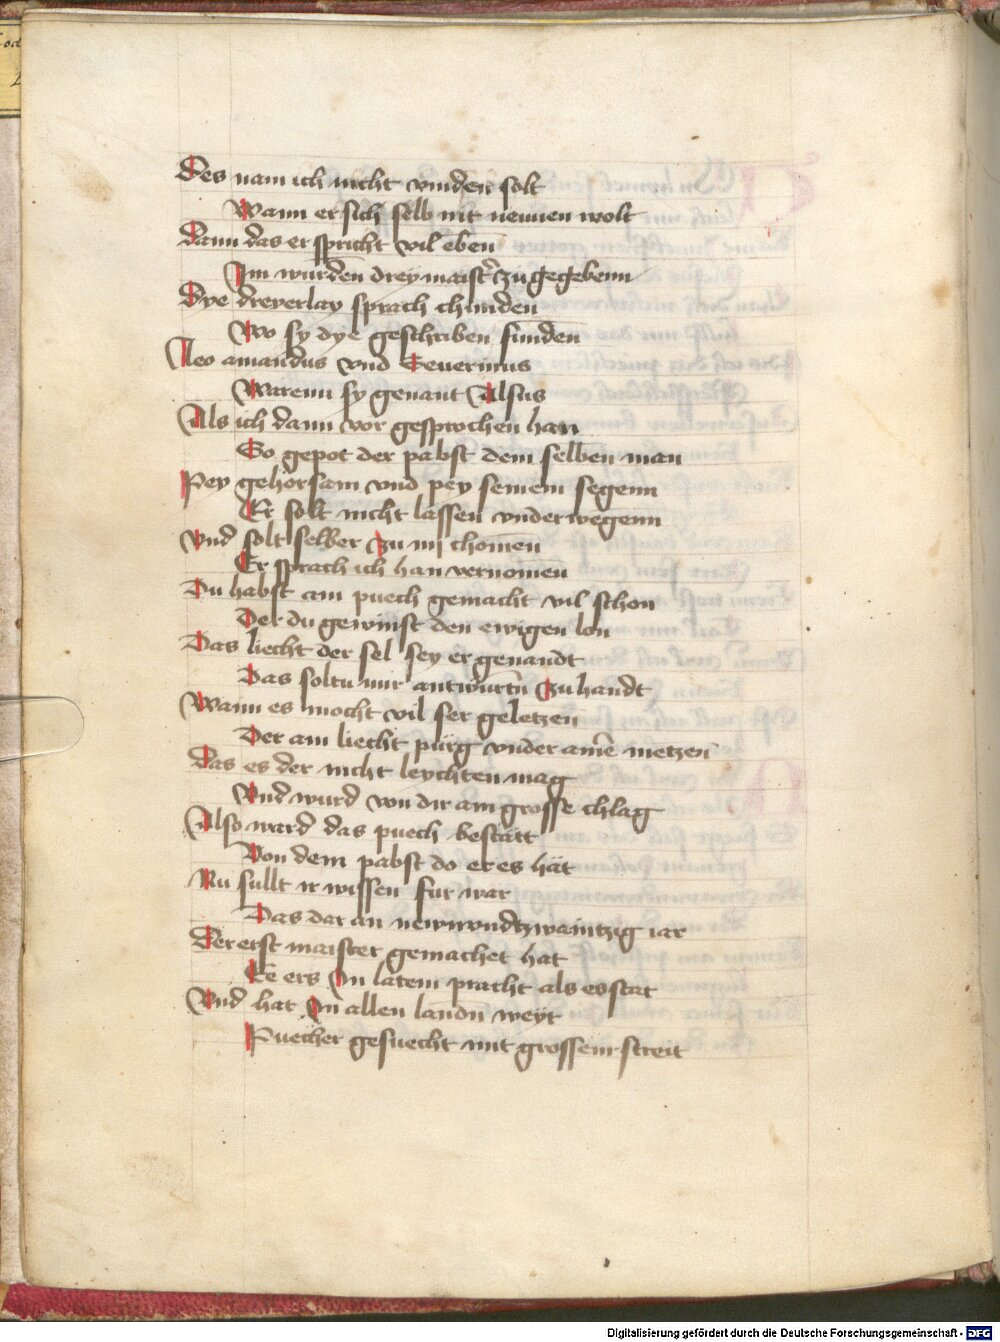 Des nam ich nicht vinden solt
Wann er sich selb nit nennen wolt
Dann das er spricht vil eben
Im wurden drey maist̄ zu gegebenn
Dye dreyerlay sprach chunden
Wo sy dye geschriben funden
Leo amandus vnd Seuerinus
Warenn sy genant Alsus
Als ich dann vor gesprochen han
So gepot der pabst dem selben man
Pey gehorsam vnd pey seinem segenn
Er solt nicht lassen vnderwegenn
Vnd solt selber zu im chomen
Er sprach ich han vernomen
Du habst ain puech gemacht vil schon
Des du gewinst den ewigen lon
Das liecht der sel sey er genandt
Das soltu mir antwurtn̄ zu handt
Wann es mocht vil ser geletzen
Der ain liecht pürg vnder aine metzen
Das es der nicht leychten mag
Vnd wurd von dir ain grosse chlag
Also ward das puech bestätt
Von dem pabst do er es hät
Nu sullt ir wissen fur war
Das dar an newnvndtzwaintzig iar
Der erst maister gemachet hat
Ee ers In latein pracht als es stat
Vnd hat In allen landn̄ weyt
Puecher gesuecht mit grossem streit
Digitalisierung gefördert durch die Deutsche Forschungsgemeinschaft - DFG